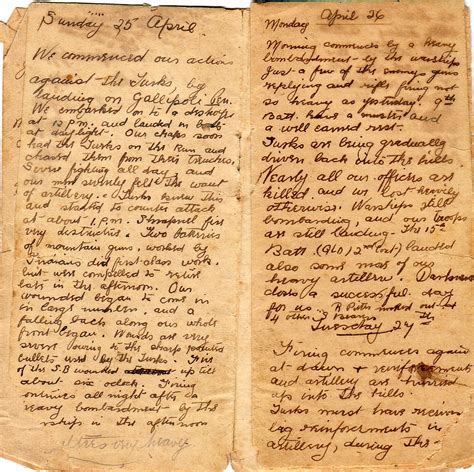 Sunday 25 April.
We commenced our actions
against the Turks by
landing on Gallipoli Pen.
We embarked on to a
at 12 p.m. and landed in
at daylight. Our chaps soon
had the Turks on the Run and
chased them from their trenches.
Severe fighting all day and
our men sorely felt the want
of artillery. Turks knew this
and started to counter attack
at about 1 p.m. Shrapnel fire
very destructive. Two batteries
of mountain guns, worked by
Indians did first-class work
but were compelled to retire
late in the afternoon. Our
wounded began to come in
in large numbers, and a
falling back along our whole
front began. Wounds are very
severe owing to the sharp pointed
bullets used by the Turks. Five
of the S.B wounded up till
about six oclock. Firing
continues all night after a
heavy bombardment by the
ships in the afternoon
very heavy
Monday April 26
Morning commences by a heavy
bombardment by the warships
Just a few of the enemy guns
replying and rifle firing not
so heavy as yesterday. 9th
Batt. have a muster and
a well earned rest.
Turks are being gradually
driven back into the hills
Nearly all our officers are
killed and we lost heavily
otherwise. Warships still
bombarding, and our troops
are still landing. The 15th
Batt. (QLD) 2nd Cont) landed
also some more of our
heavy artillery. Darkness
closes a successful day
for us. R Pitts
4 others
Tuesday 27th
Firing commences again
at dawn + reinforcements
and artillery are hurried
up into the hills.
Turks must have received
big reinforcements in
artillery, during the